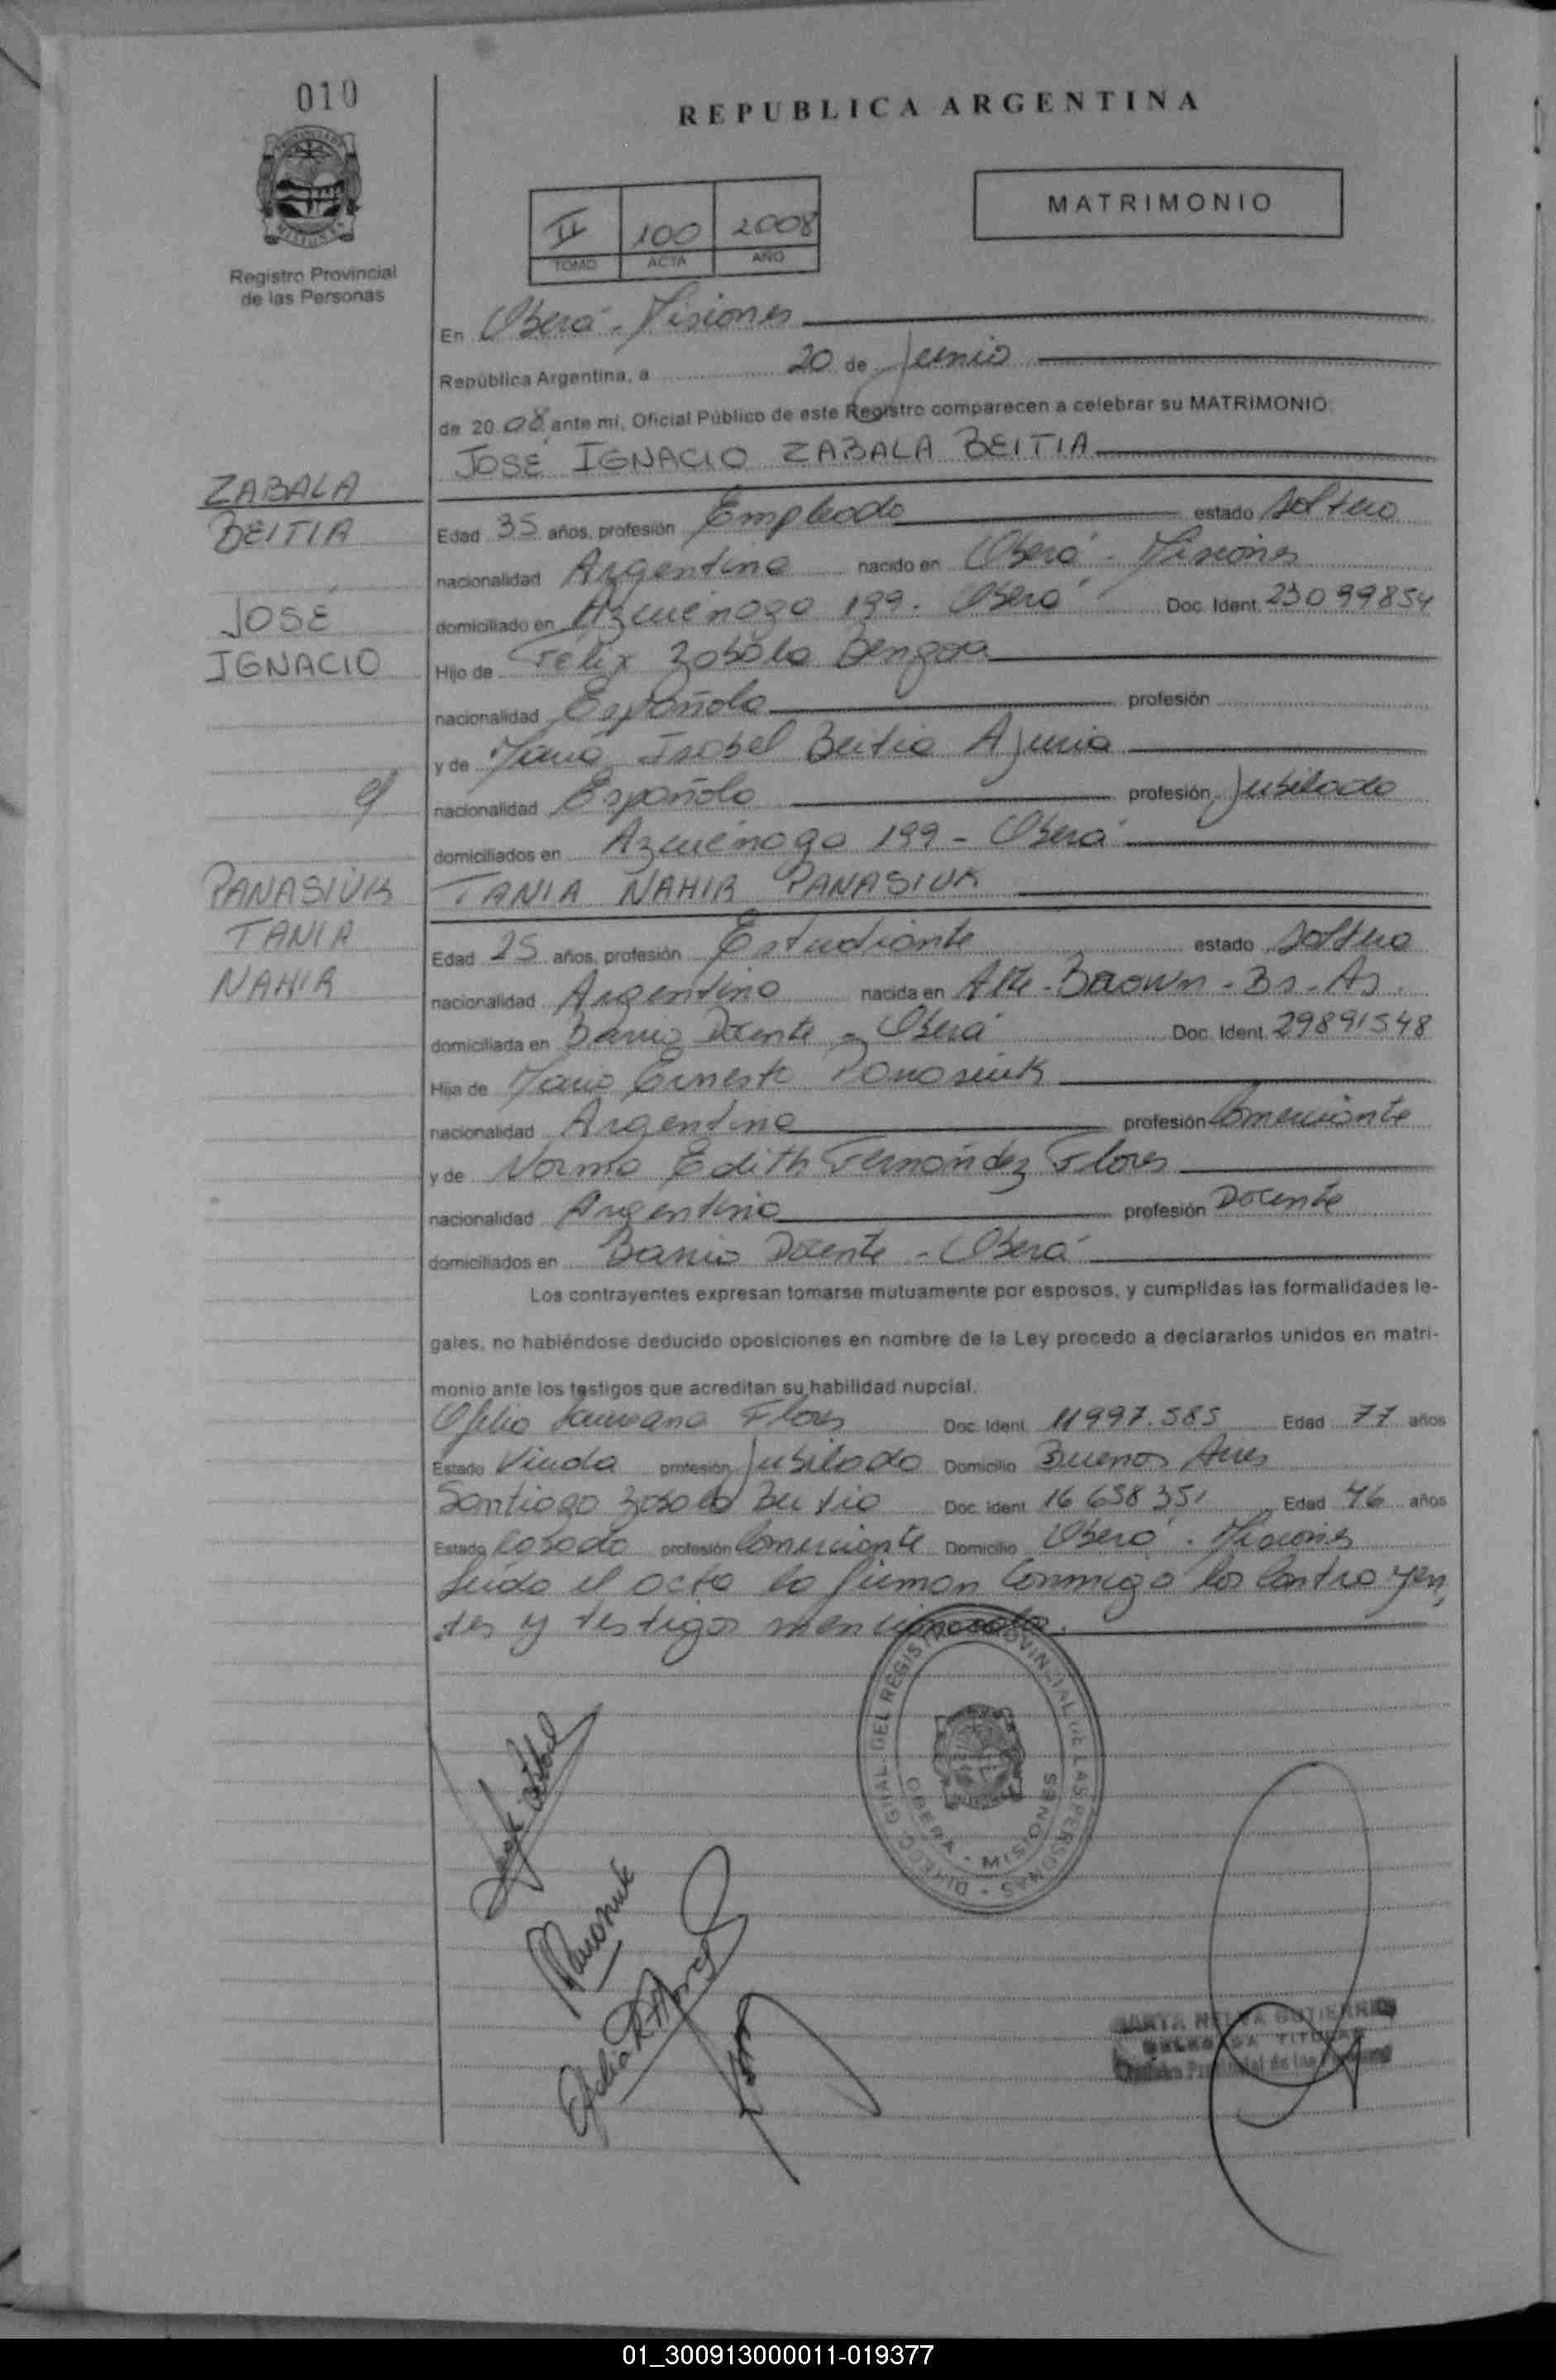 010
REPUBLICA ARGENTINA
Registro Provincial
de las Personas
II 100 2008
TOMO ACTA AÑO
MATRIMONIO
En Oberá - Misiones
República Argentina, a 20 de Junio
de 2008, ante mí, Oficial Público de este Registro comparecen a celebrar su MATRIMONIO:
JOSÉ IGNACIO ZABALA BEITIA
ZABALA
BEITIA
JOSÉ
IGNACIO
Edad 35 años, profesión Empleado estado soltero
nacionalidad Argentina nacido en Oberá - Misiones
domiciliado en Azcuénaga 199 - Oberá Doc. Ident. 23099854
Hijo de Félix Zabala Bengoa
nacionalidad Española profesión
y de María Isabel Beitia Ajuria
nacionalidad Española profesión Jubilada
domiciliados en Azcuénaga 199 - Oberá
TANIA NAHIR PANASIUK
c/
PANASIUK
TANIA
NAHIR
Edad 25 años, profesión Estudiante estado soltera
nacionalidad Argentina nacida en Alte - Brown - Bs - As.
domiciliada en Barrio Docente - Oberá Doc. Ident. 29891548
Hija de Mario Ernesto Panasiuk
nacionalidad Argentina profesión Comerciante
y de Norma Edith Fernández Flores
nacionalidad Argentina profesión Docente
domiciliados en Barrio Docente - Oberá
Los contrayentes expresan tomarse mutuamente por esposos, y cumplidas las formalidades le-
gales, no habiéndose deducido oposiciones en nombre de la Ley procedo a declararlos unidos en matri-
monio ante los testigos que acreditan su habilidad nupcial.
Ofelia Flores Doc. Ident. 11997.585 Edad 77 años
Estado Viuda profesión Jubilada Domicilio Buenos Aires
Santiago Zabala Beitia Doc. Ident. 16658351 Edad 46 años
Estado Casado profesión Comerciante Domicilio Oberá - Misiones
Leída el acta la firman conmigo los contrayen
tes y testigos mencionados.
DIRECC. GRAL. DEL REGISTRO PROVINCIAL DE LAS PERSONAS
OBERA - MISIONES
Panasiuk
GUTIERREZ
TITULAR
01_300913000011-019377